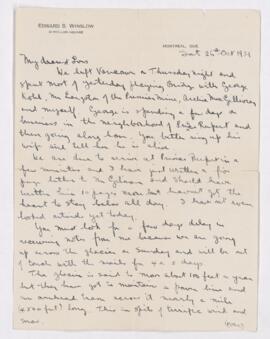 EDWARD S. WINSLOW
MONTREAL, QUE
Sat. 26th Oct 1931
My dearest Lois
We left Vancouver Thursday night and
spent most of yesterday playing Bridge with George
and myself. George is spending a few days on
business in the neighborhood of Prince Rupert and
then going along home. You better ring up his
wife and tell her he is alive.
We are due to arrive at Prince Rupert in a
few minutes and I have just written a
page letter to and should have
written him 10 pages more but haven't got the
heart to stay below all day. I haven't even
looked ashore yet today.
You must look for a few days delay in
receiving notes from me because we are going
up across the glacier on Sunday and will be out
of touch with the mails for 4 or 5 days.
The glacier is said to move about 100 feet a year
but they have got to maintain a power line and
an overhead tram across it nearly a mile
(4500 feet) long. This in spite of terrific wind and
snow.